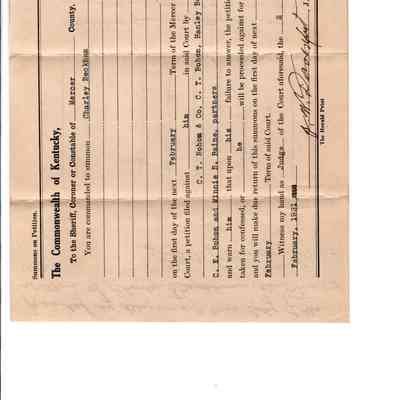 Summons on Petition.
The Commonwealth of Kentucky,
To the Sheriff, Coroner or Constable of Mercer County.
You are commanded to summon Charley Beckham
on the first day of the next February Term of the Mercer
Court, a petition filed against him in said Court by
C. T. Bohon & Co. C. T. Bohon, Hanley Bo
C. E. Bohon and Minnie B. Baine, partners
and warn him that upon his failure to answer, the petition
taken for confessed, or he will be proceeded against for
and you will make due return of this summons on the first day of next
February Term of said Court.
Witness my hand as Judge of the Court aforesaid, the 2
February, 1931
The Herald Print